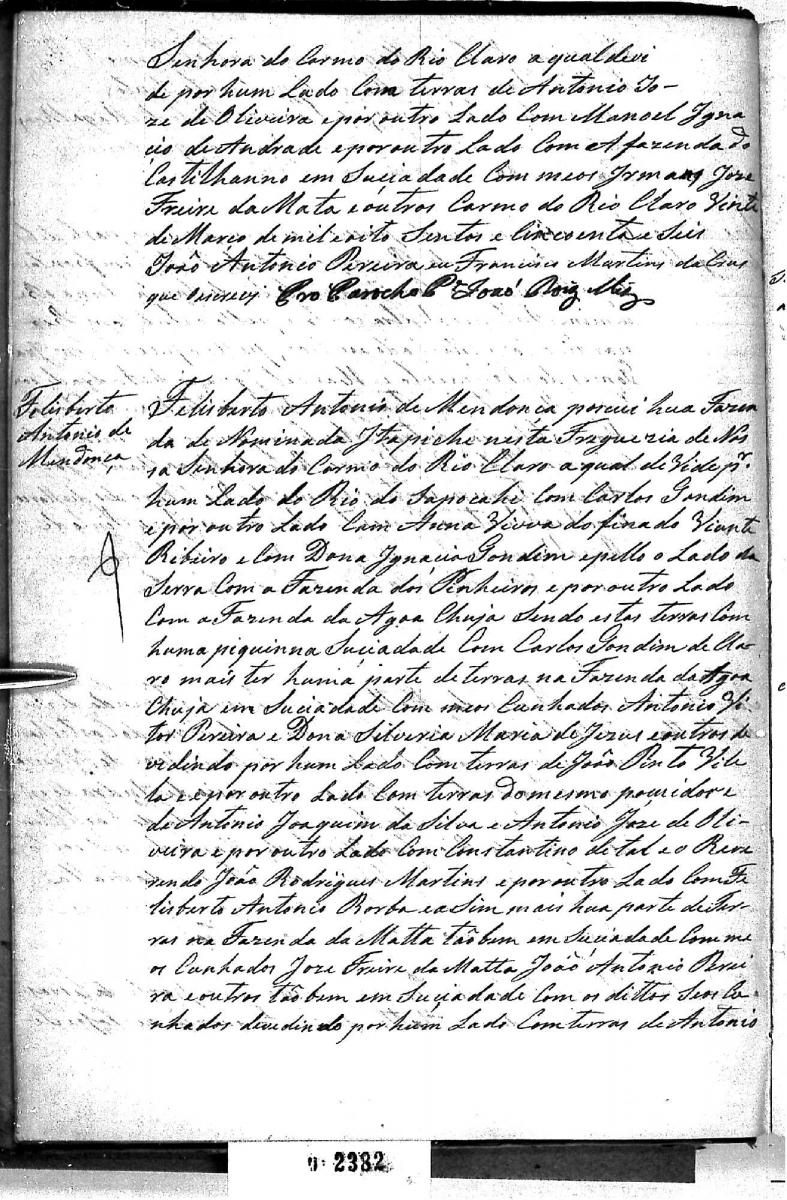 Senhora do Carmo do Rio Claro a qual devi
de por hum Lado Com terras de Antonio Jo-
ze de Oliveira e por outro Lado Com Manoel Ygna
cio de Andrade e por outro Lado Com A fazenda do
Castilhanno em Suciadade Com meos Irmaos Joze
Freire da Mata e outros Carmo do Rio Claro Vinte
de Março de mil e oito Sentos e Cincoenta e Seis
João Antonio Pereira eu Francisco Martins da Crus
que escrevi Pro Parocho Pe João Roiz Miz
Felisberto
Antonio de
Mendonça
Felisberto Antonio de Mendonca pocui hua Fazen
da de Nominada Itapiche nesta Freguezia de Nos
sa Senhora do Carmo do Rio Claro a qual de Vide pr
hum Lado do Rio do Sapocahi Com Carlos Gondim
e por outro Lado Com Anna Viuva do finado Vicente
Ribeiro e Com Dona Ignacia Gondim e pello o Lado da
Serra Com a Fazenda dos Pinheiros e por outro Lado
Com a Fazenda da Agoa Chuja Sendo estas terras Com
huma piquinna Suciadade Com Carlos Gondim de Cla
ro mais ter huma parte de terras na Fazenda da Agoa
Chuja em Suciadade Com meos Cunhados Antonio Vi
tor Pereira e Dona Silveria Maria de Jezus e outros de
vidindo por hum Lado Com terras de João Pinto Vile
la e e por outro Lado Com terras do mesmo pocuidor e
de Antonio Joaquim da Silva e Antonio Joze de Oli-
veira e por outro Lado Com Constantino de tal e o Reve
rendo João Rodrigues Martins e por outro Lado Com Fe
lisberto Antonio Borba e a Sim mais hua parte de Ter-
ras na Fazenda da Matta tão bem em Suciadade Com me
os Cunhados Joze Freire da Matta João Antonio Perei
ra e outros tão bem em Suciadade Com os dittos Seos Cu-
nhados devedindo por hum Lado Com terras de Antonio
2382